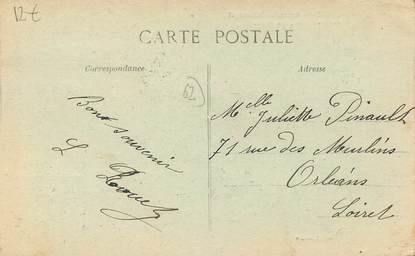 12€
CARTE POSTALE
Correspondance
Adresse
62
Bons souvenir
L
Melle Juliette Pinault
71 rue des Murlins
Orléans
Loiret